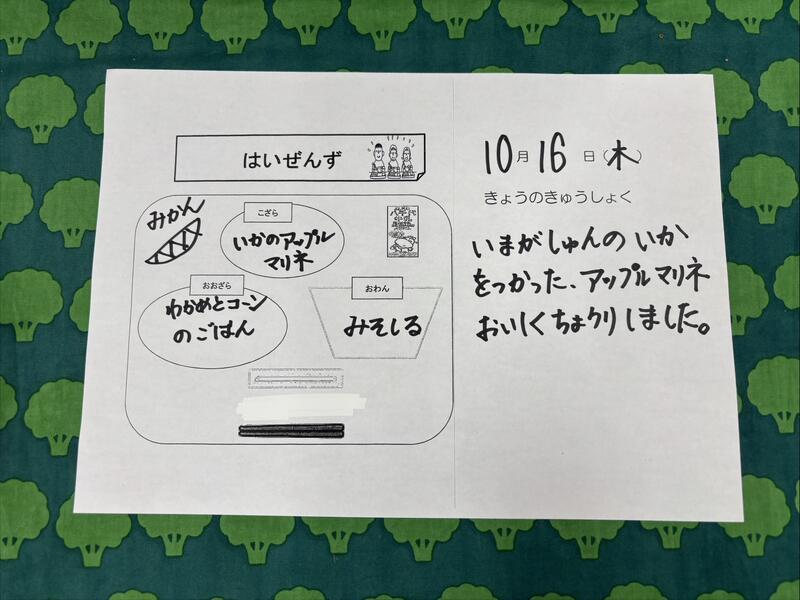 はいぜんず
みかん
こざら
いかのアップル
マリネ
おおざら
わかめとコーン
のごはん
おわん
みそしる
10月16日(木)
きょうのきゅうしょく
いまがしゅんのいか
をつかった、アップルマリネ
おいしくちょうりしました。